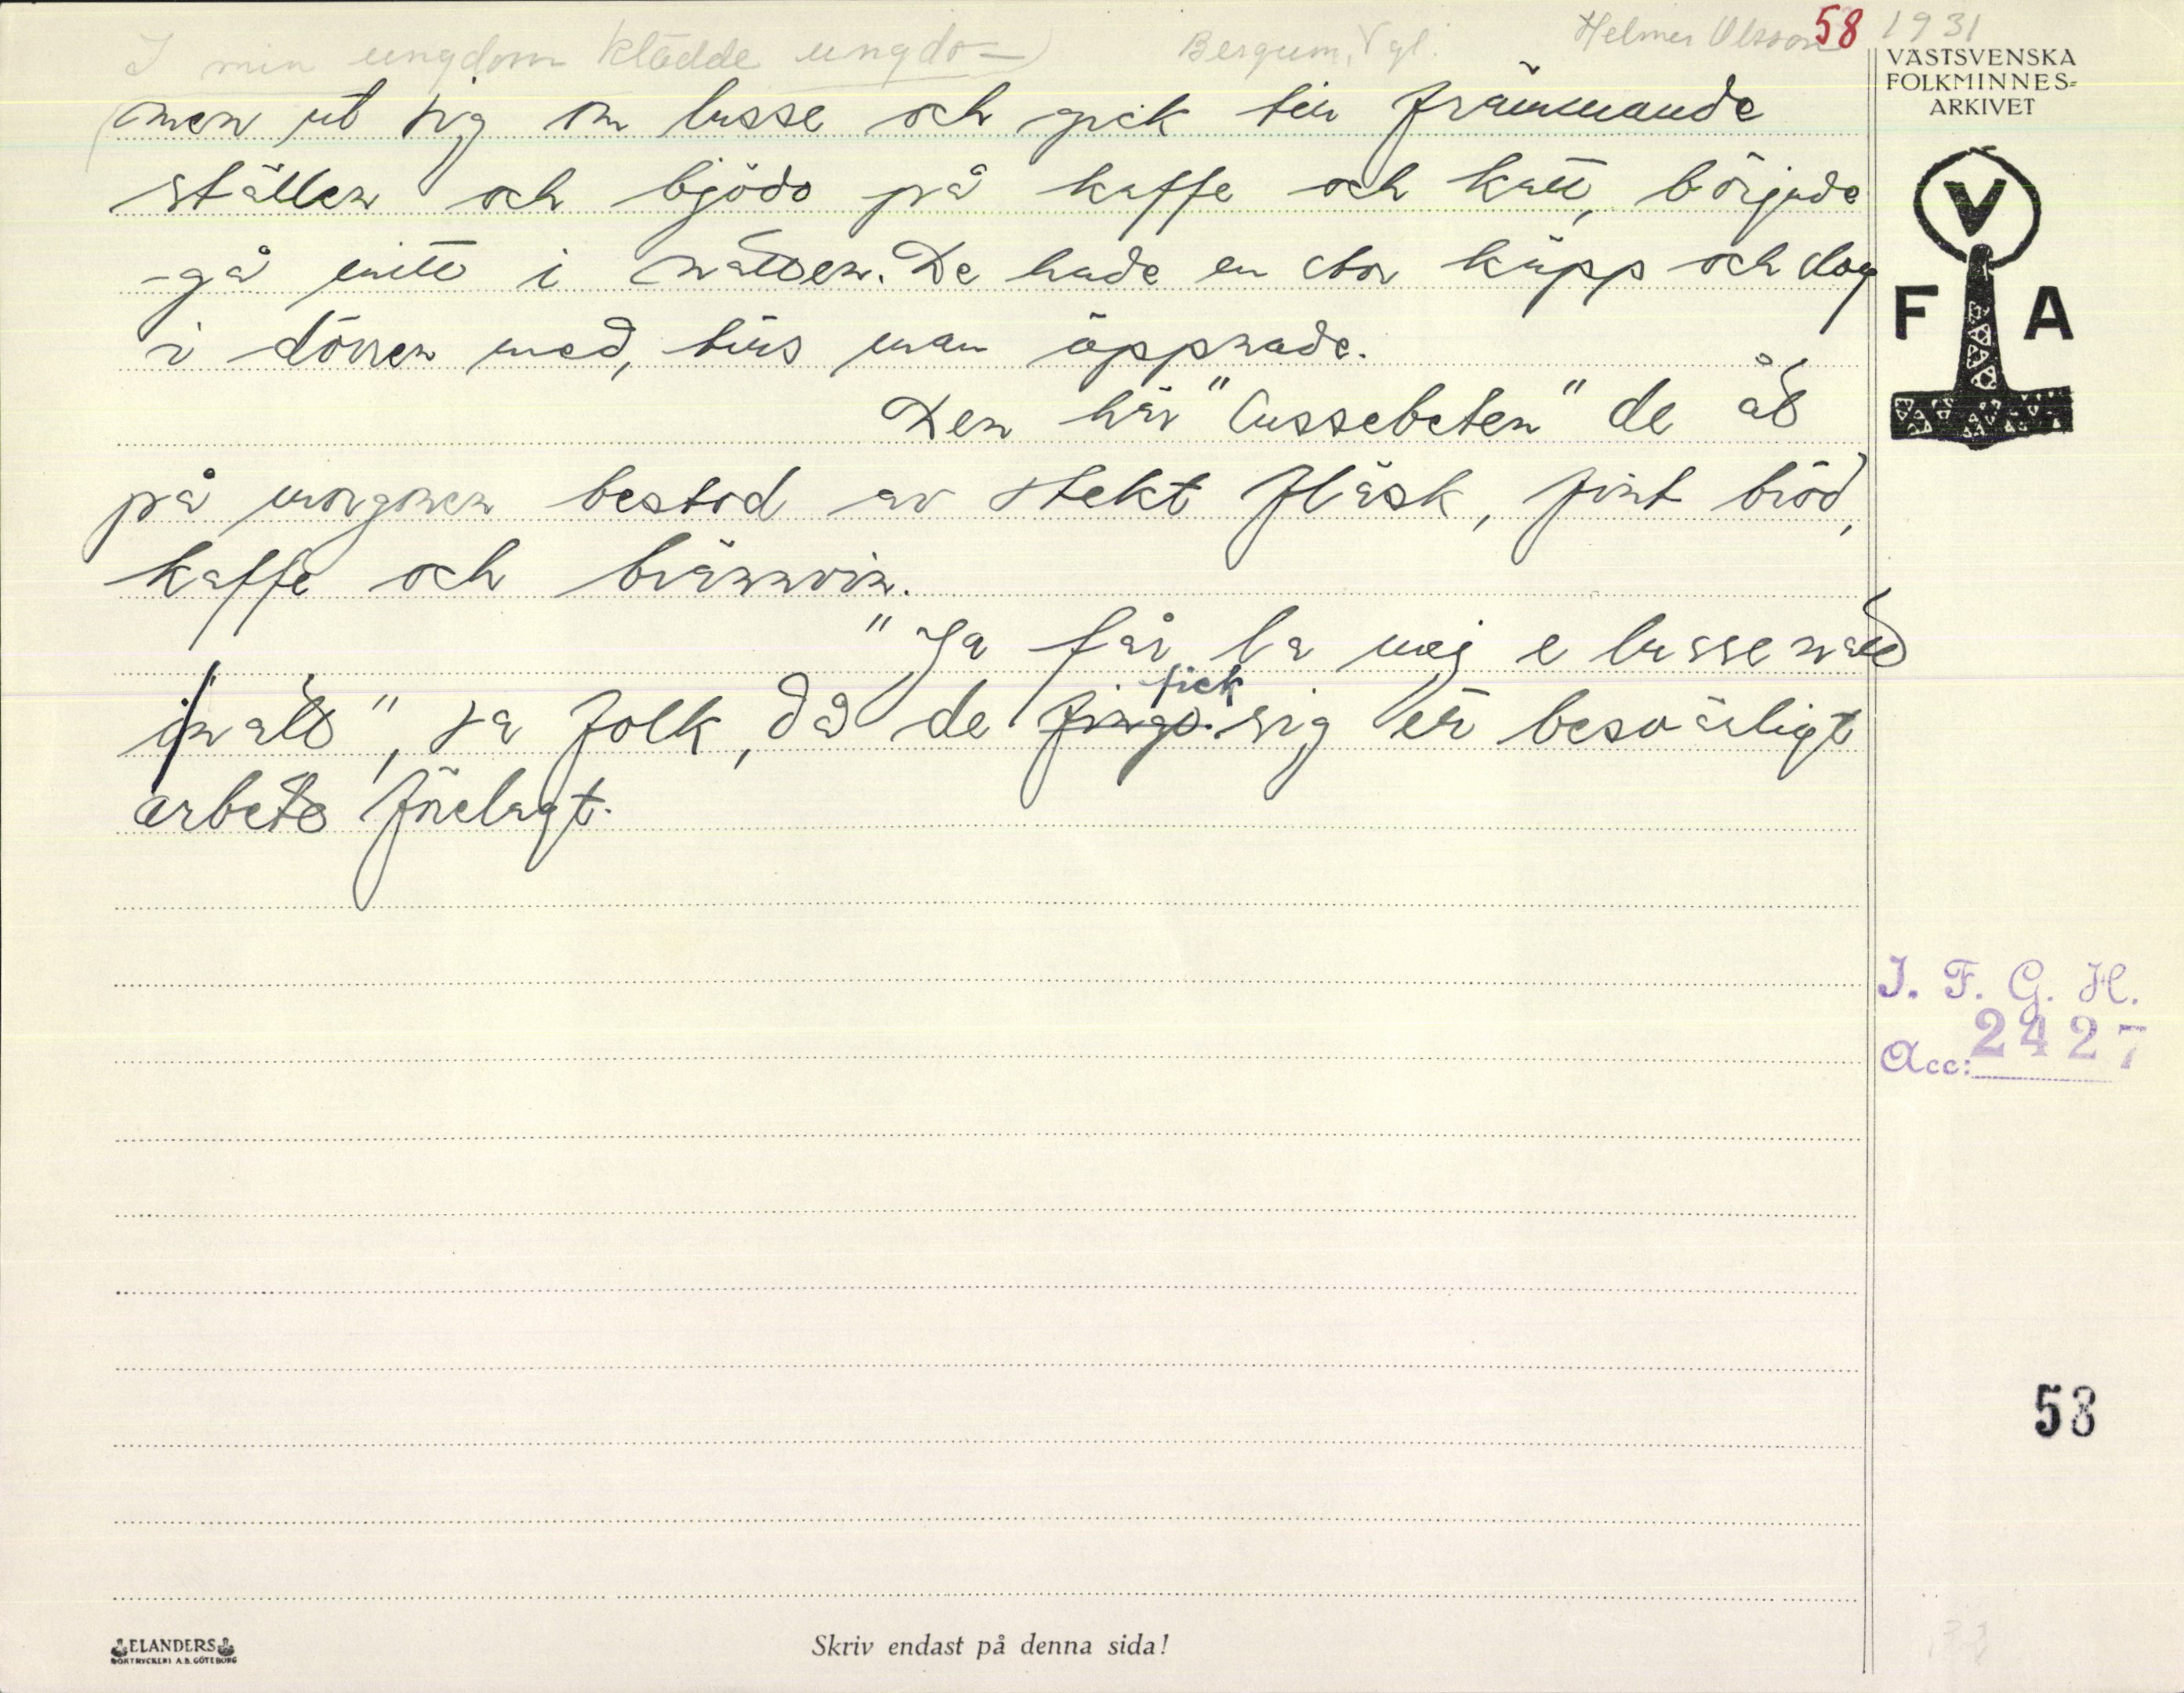 I min ungdom klädde ungdo=) Bergum, Vgl. Helmer Olsson 58 1931
(men ut sig om lusse och gick till främmande
ställen och bjödo på kaffe och katt, började
gå mitt i natten. De hade en stor käpp och slog
i dörren med, tills man öppnade.
Den här "lussebeten" de åt
på morgonen bestod av stekt fläsk, fint bröd,
kaffe och brännvin.
"Ja får la mej e lussenatt
inatt", sa folk, då de fingo fick sig ett besvärligt
arbete förelagt.
VÄSTSVENSKA
FOLKMINNES=
ARKIVET
V
F A
I. F. G. H.
Acc: 2427
58
ELANDERS
BOKTRYCKERI A.B. GÖTEBORG
Skriv endast på denna sida!